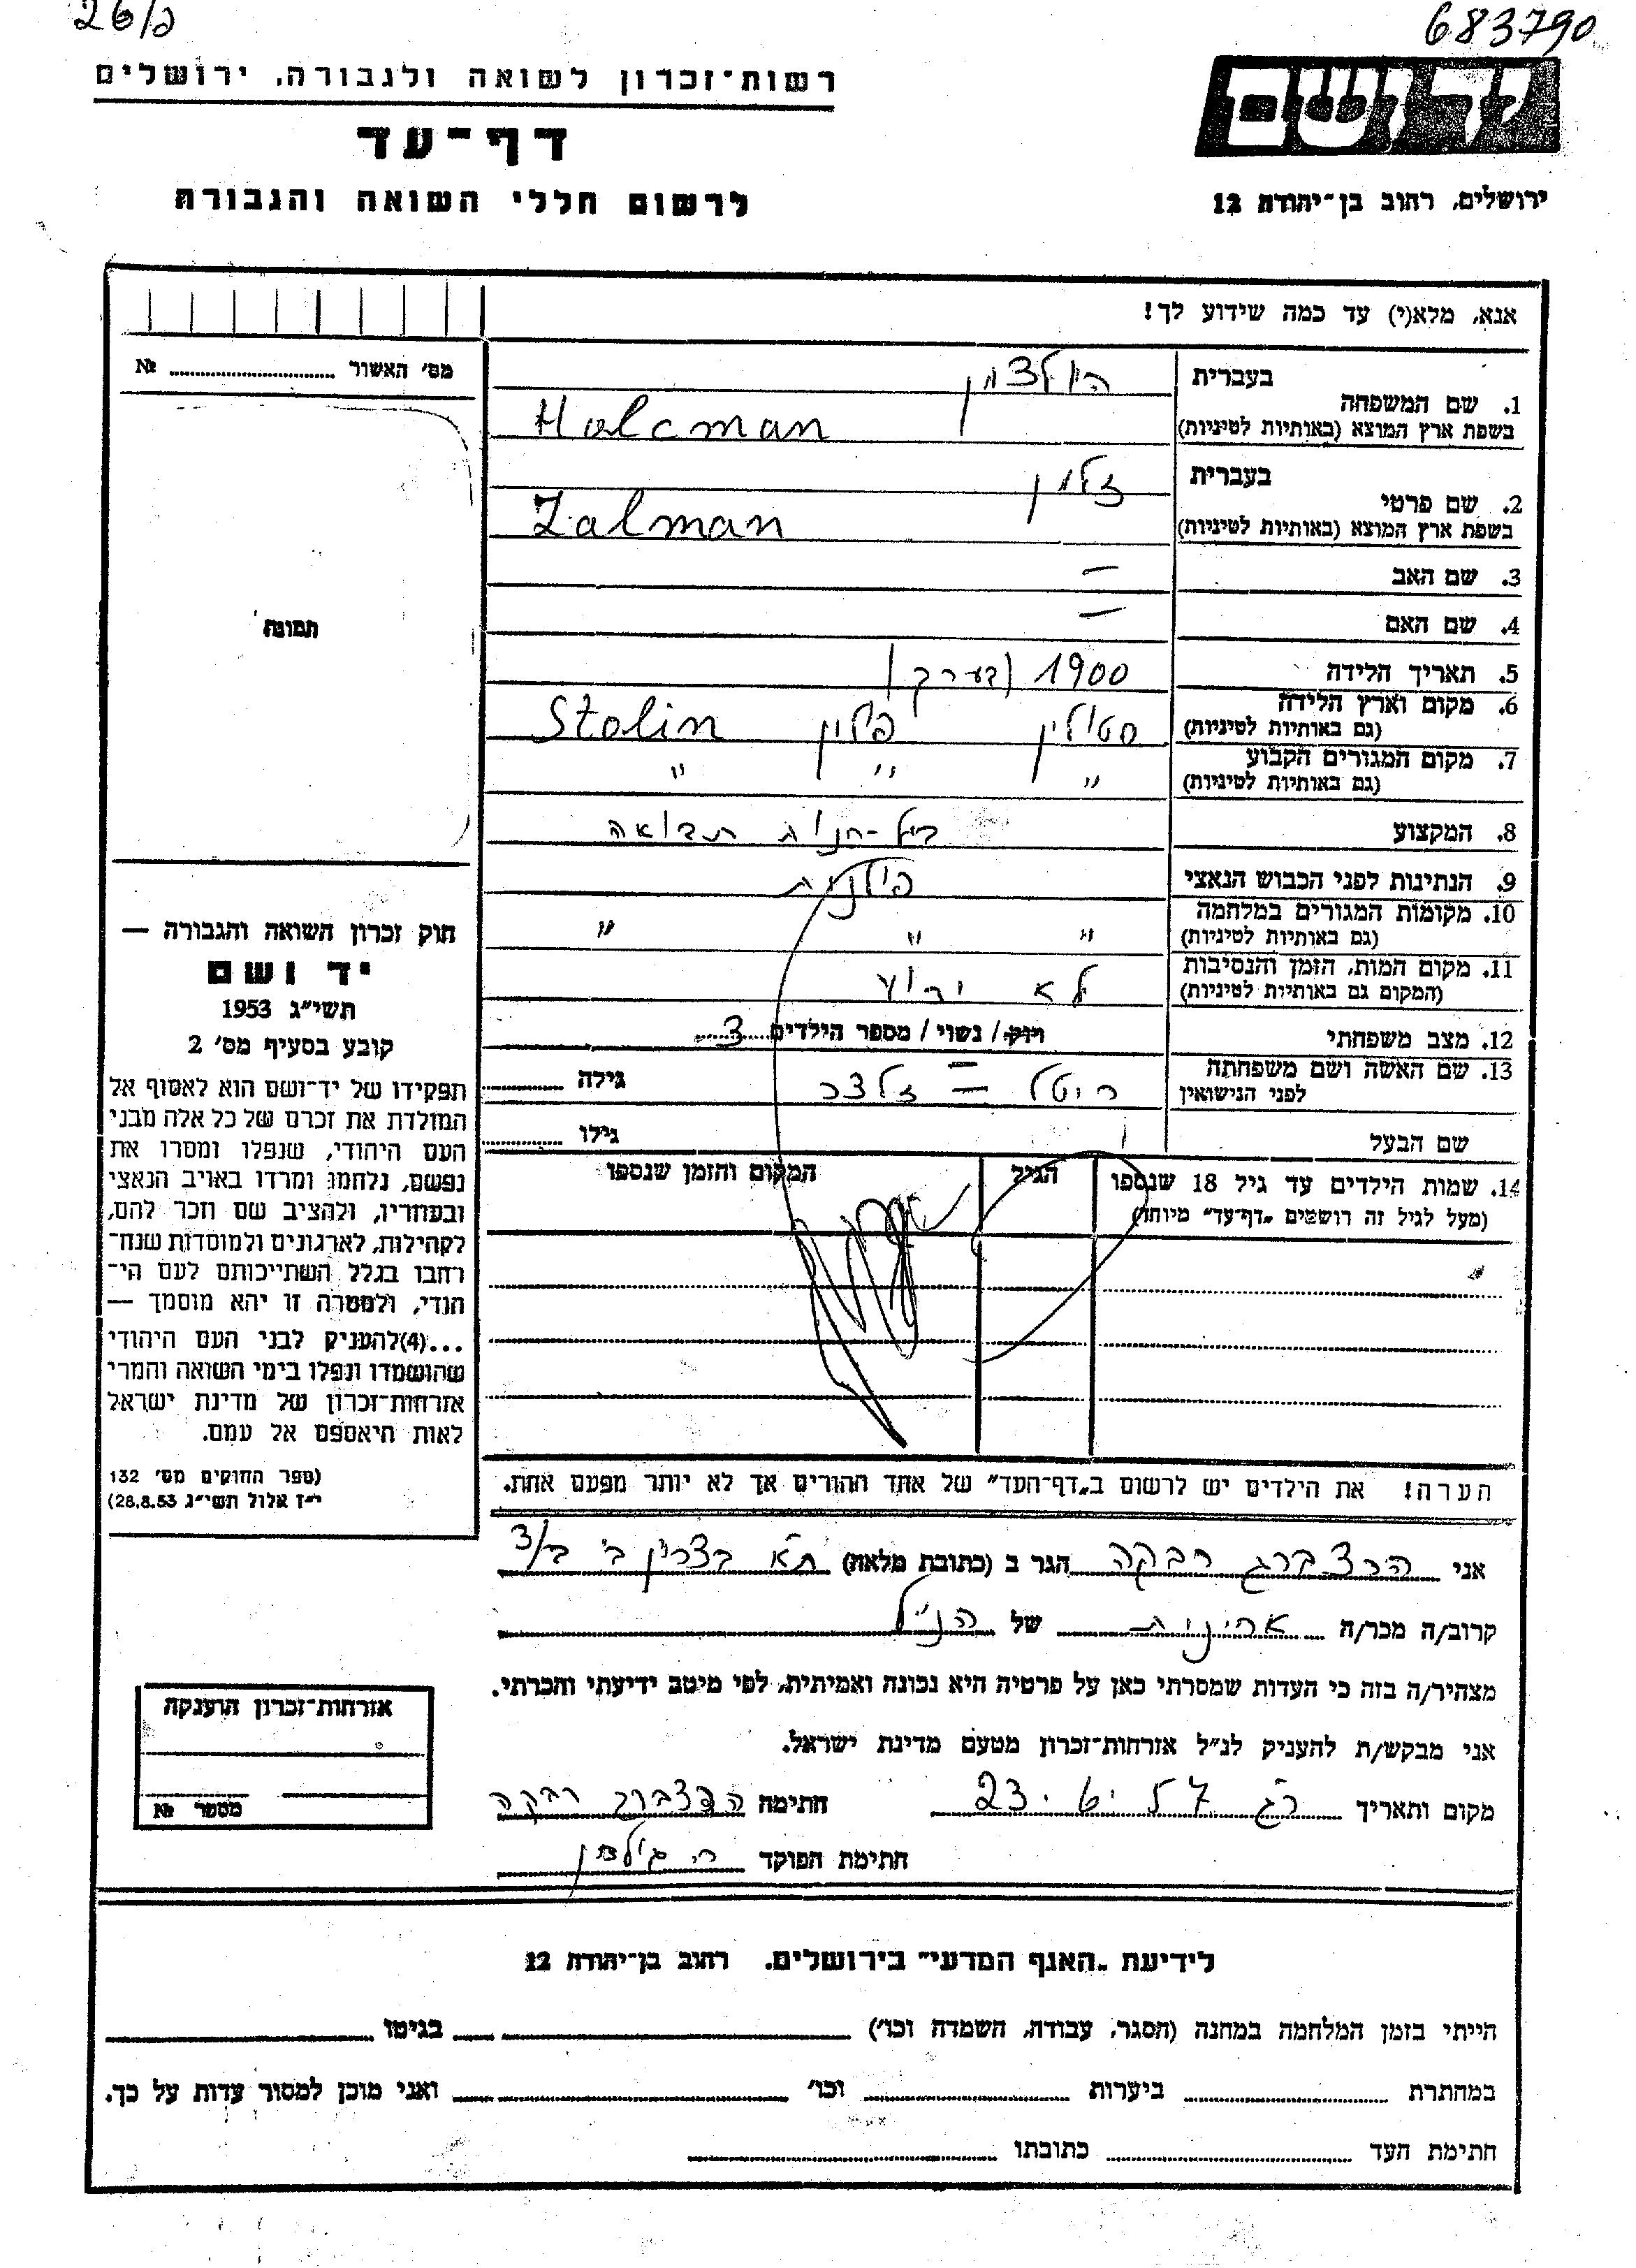 26/ב
683790
רשות־זכרון לשואה ולגבורה, ירושלים
דף־עד
לרשום חללי השואה והגבורה
יד ושם
ירושלים, רחוב בן־יהודה 12
אנא, מלא(י) עד כמה שידוע לך!
מס׳ האשור № 
תמונה
1. שם המשפחה בעברית הולצמן
בשפת ארץ המוצא (באותיות לטיניות) Holcman
2. שם פרטי בעברית זלמן
בשפת ארץ המוצא (באותיות לטיניות) Zalman
3. שם האב —
4. שם האם —
5. תאריך הלידה 1900 (בערך)
6. מקום וארץ הלידה סטולין פולין Stolin
(גם באותיות לטיניות)
7. מקום המגורים הקבוע " " "
(גם באותיות לטיניות)
8. המקצוע בעל-חנות תבואה
9. הנתינות לפני הכבוש הנאצי פולנית
10. מקומות המגורים במלחמה " " "
(גם באותיות לטיניות)
11. מקום המות, הזמן והנסיבות לא ידוע
(המקום גם באותיות לטיניות)
12. מצב משפחתי רווק / נשוי / מספר הילדים 3
13. שם האשה ושם משפחתה = גילה
לפני הנישואין
שם הבעל גילו
14. שמות הילדים עד גיל 18 שנספו הגיל המקום והזמן שנספו
(מעל לגיל זה רושמים „דף־עד” מיוחד)
הערה! את הילדים יש לרשום ב„דף־העד” של אחד ההורים אך לא יותר מפעם אחת.
חוק זכרון השואה והגבורה —
יד ושם
תשי״ג 1953
קובע בסעיף מס׳ 2
תפקידו של יד־ושם הוא לאסוף אל
המולדת את זכרם של כל אלה מבני
העם היהודי, שנפלו ומסרו את
נפשם, נלחמו ומרדו באויב הנאצי
ובעוזריו, ולהציב שם וזכר להם,
לקהילות, לארגונים ולמוסדות שנח־
רבו בגלל השתייכותם לעם הי־
הודי, ולמטרה זו יהא מוסמך —
...(4)להעניק לבני העם היהודי
שהושמדו ונפלו בימי השואה והמרי
אזרחות־זכרון של מדינת ישראל
לאות היאספם אל עמם.
(ספר החוקים מס׳ 132
י״ז אלול תשי״ג 28.8.53)
אני הרצברג רבקה הגר ב (כתובת מלאה) ת״א בצרון ב׳ ב/3
קרוב/ה מכר/ה אחינית של הנ״ל
מצהיר/ה בזה כי העדות שמסרתי כאן על פרטיה היא נכונה ואמיתית, לפי מיטב ידיעתי והכרתי.
אני מבקש/ת להעניק לנ״ל אזרחות־זכרון מטעם מדינת ישראל.
מקום ותאריך רג 23.6.57 חתימה הרצברג רבקה
חתימת הפוקד
אזרחות־זכרון הוענקה
מספר №
לידיעת „האגף המדעי” בירושלים. רחוב בן־יהודה 12
הייתי בזמן המלחמה במחנה (הסגר, עבודה, השמדה וכו׳) בגיטו
במחתרת ביערות וכו׳ ואני מוכן למסור עדות על כך.
חתימת העד כתובתו